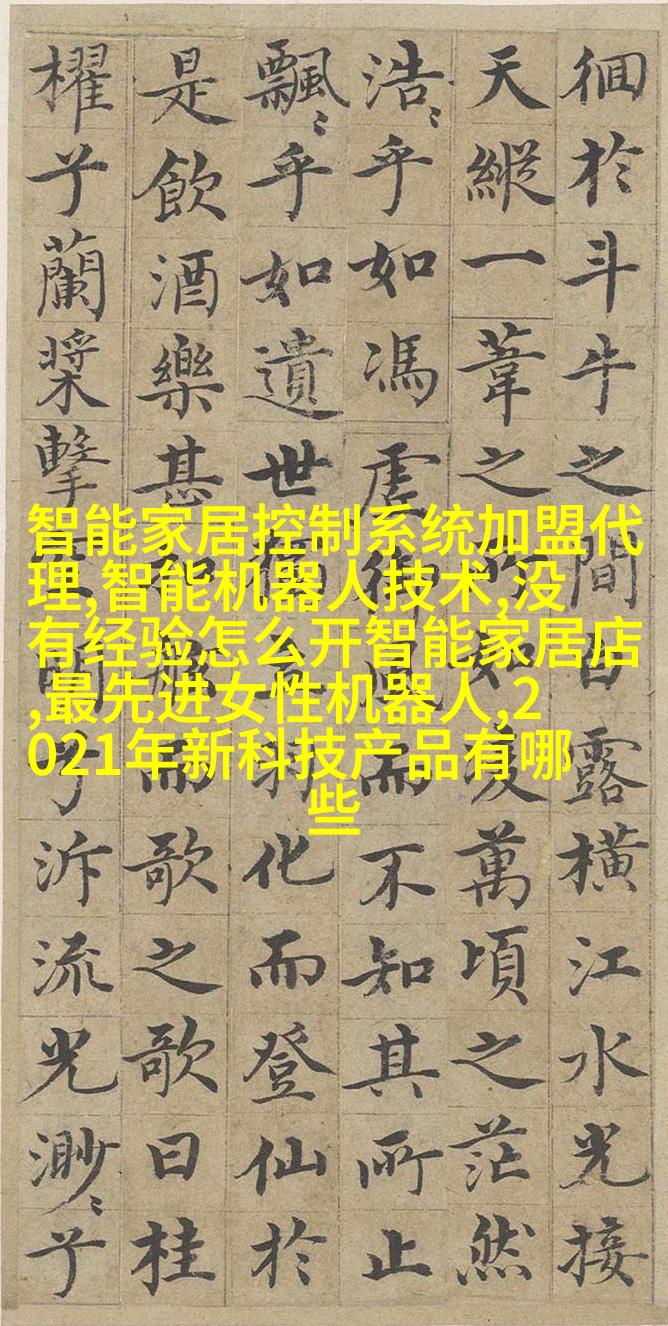 徊於斗牛之間白露橫江水光接
天縱一葦之所如凌萬頃之茫然
浩〻乎如馮虛御風而不知其所止
飄〻乎如遺世獨立羽化而登仙於
是飲酒樂甚扣舷而歌之歌曰桂
櫂兮蘭槳擊空明兮泝流光渺〻兮
智能家居控制系统加盟代
理,智能机器人技术,没
有经验怎么开智能家居店
,最先进女性机器人,2
021年新科技产品有哪
些